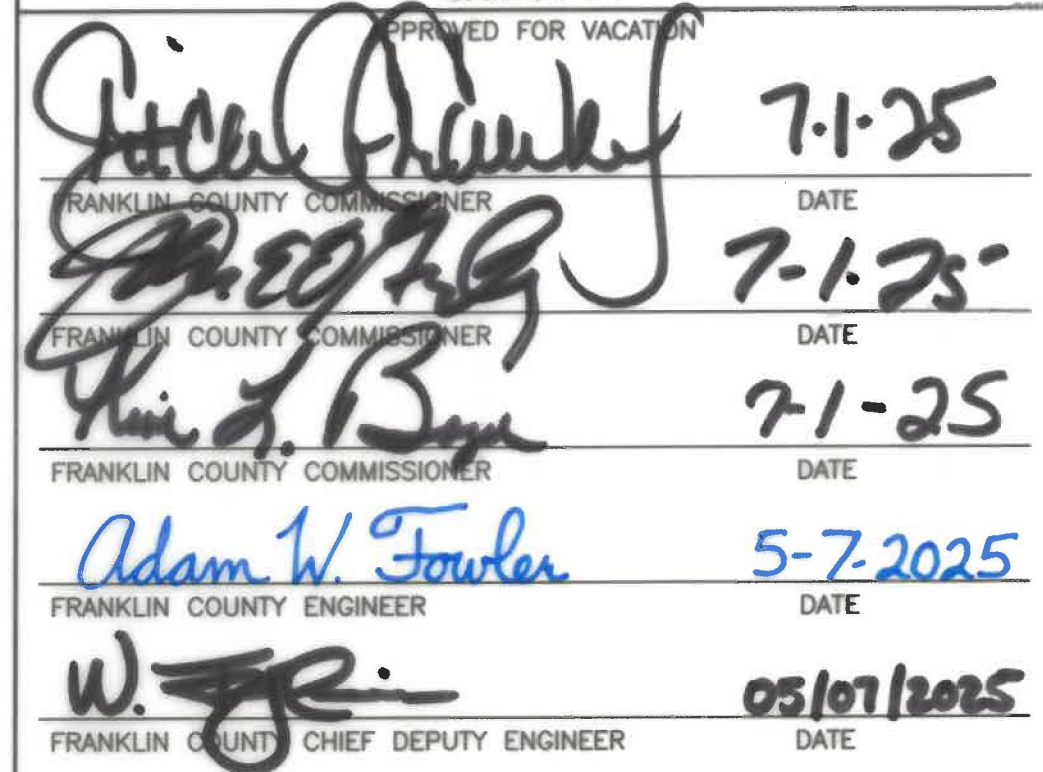 APPROVED FOR VACATION
7-1-25
FRANKLIN COUNTY COMMISSIONER DATE
7-1-25
FRANKLIN COUNTY COMMISSIONER DATE
L. 7-1-25
FRANKLIN COUNTY COMMISSIONER DATE
Adam W. Fowler 5-7-2025
FRANKLIN COUNTY ENGINEER DATE
W. 05/07/2025
FRANKLIN COUNTY CHIEF DEPUTY ENGINEER DATE